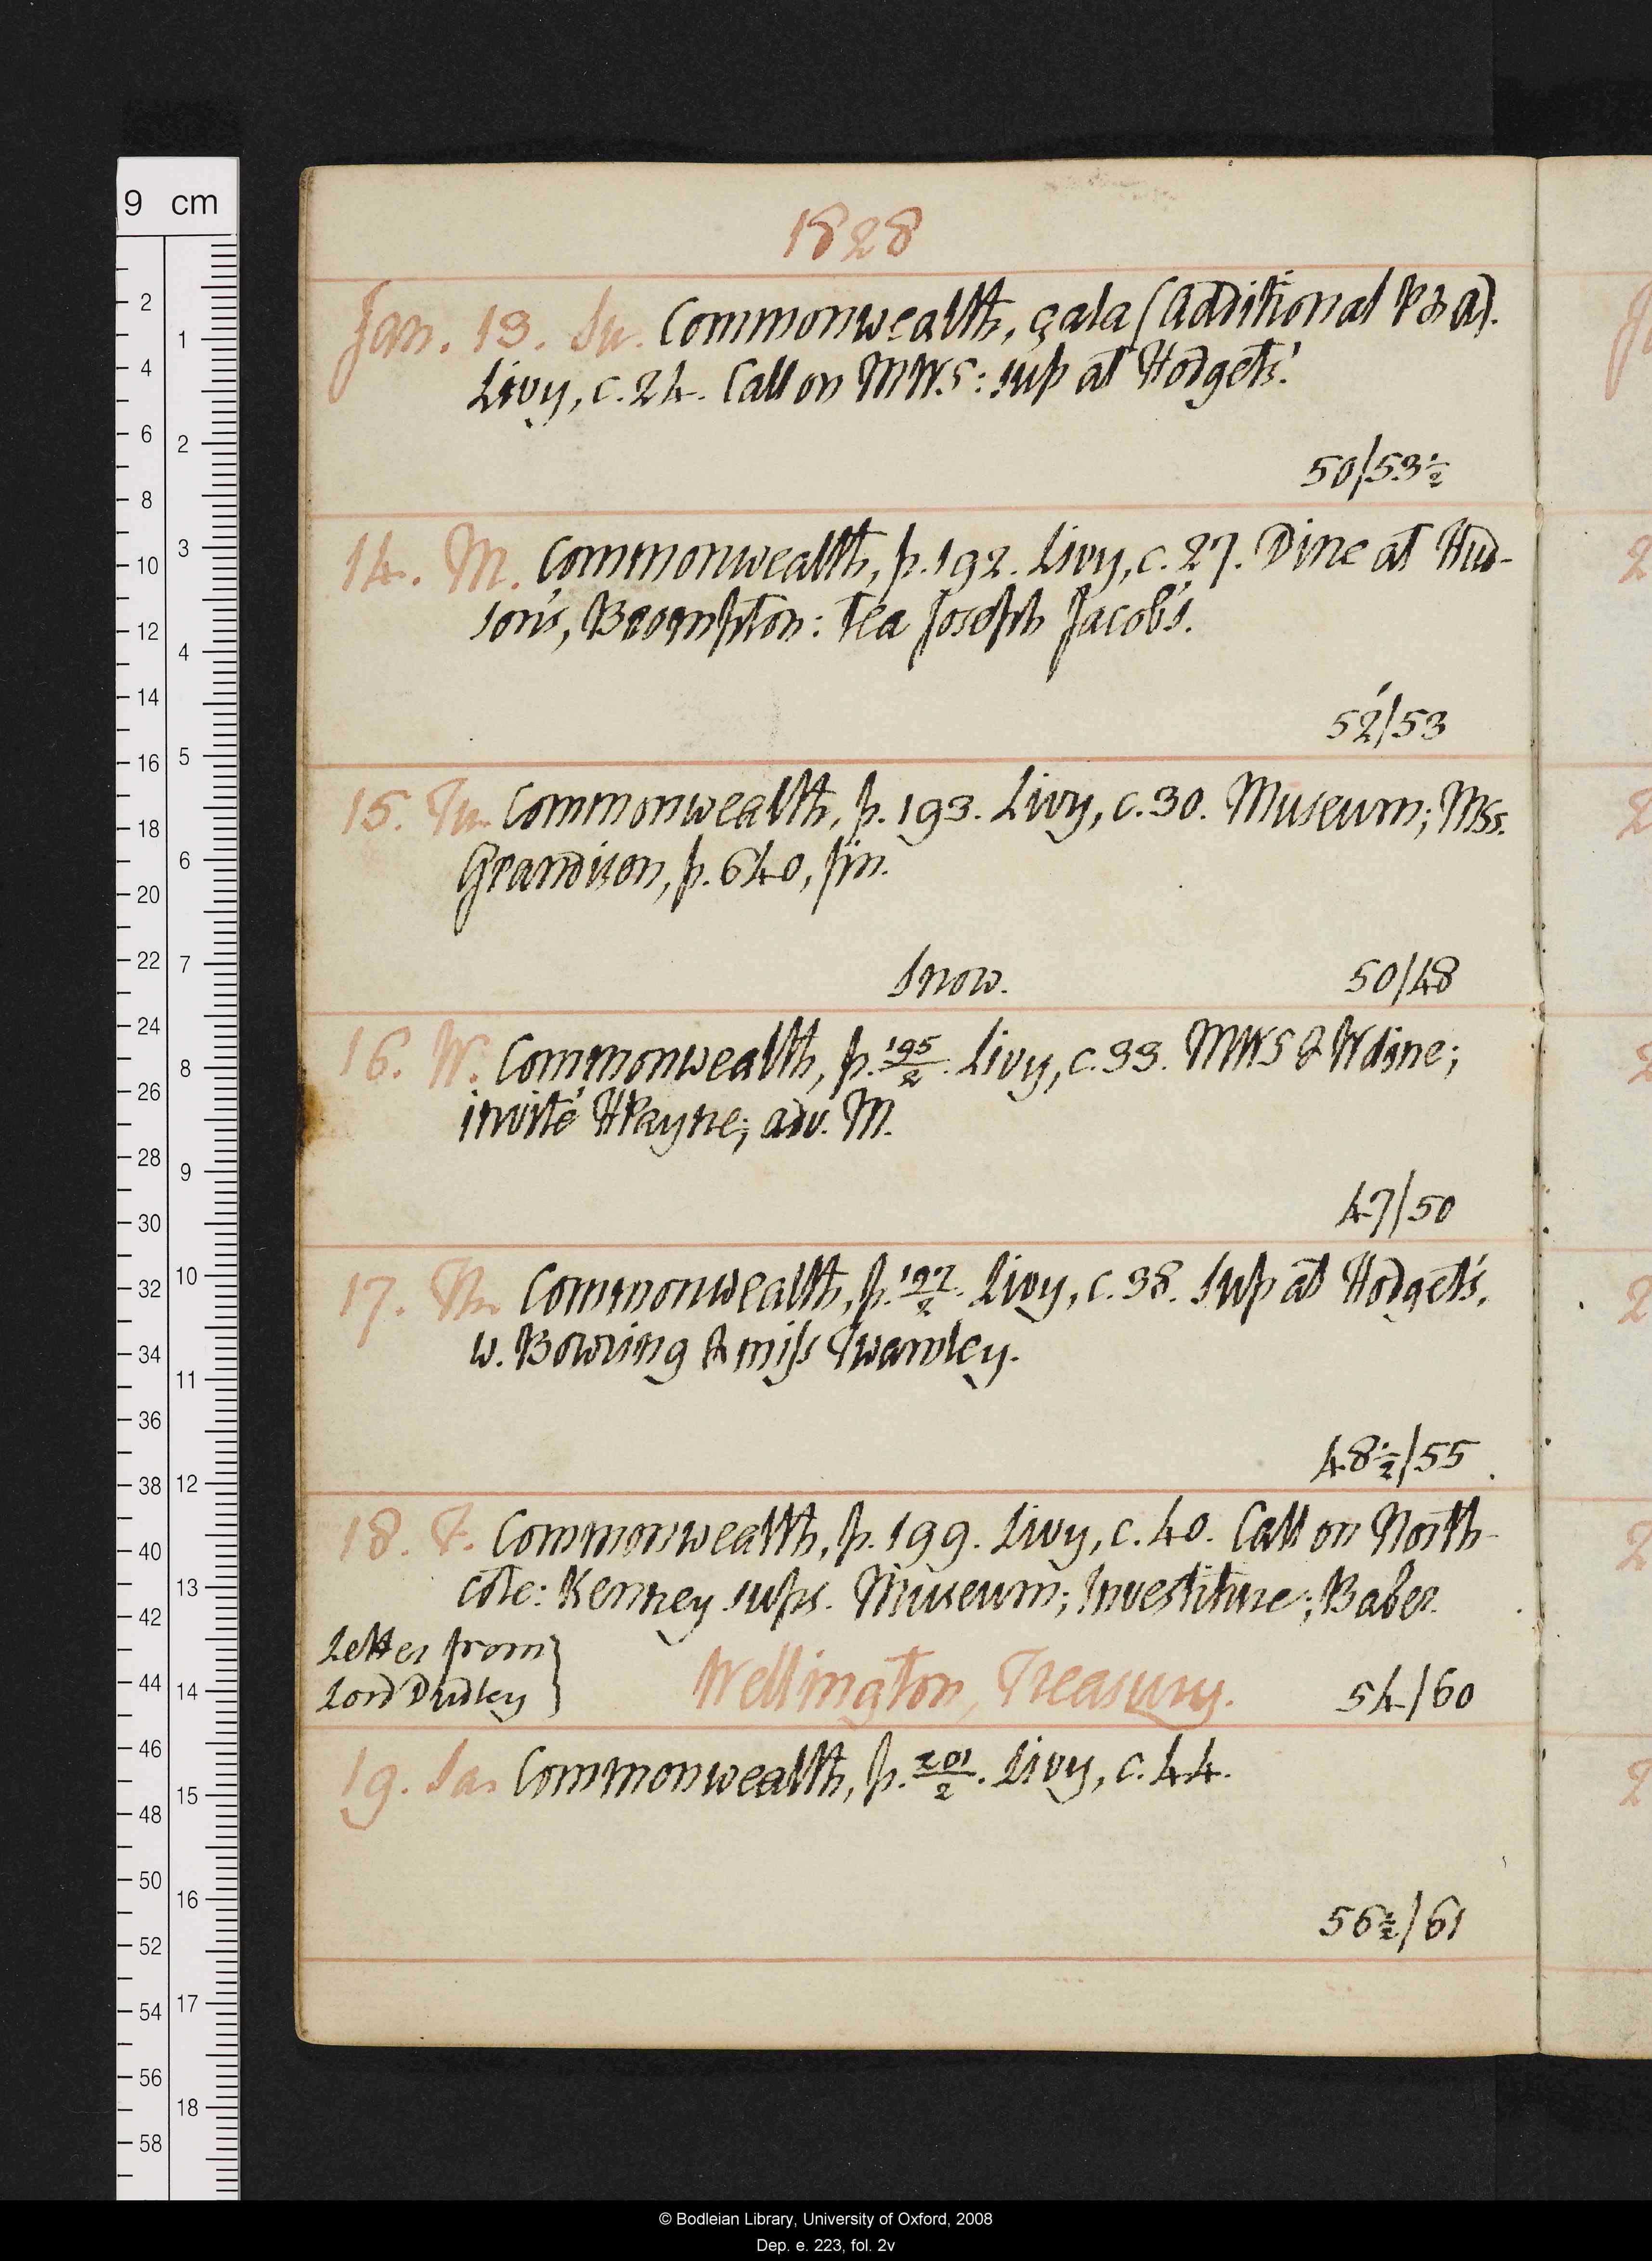 1828
Jan. 13. Su. Commonwealth, gala (additional P & A).
Livy, c. 24. Call on MWS: sup at Hodgets'.
50/53½
14. M. Commonwealth, p. 192. Livy, c. 27. Dine at Hud-
son's, Brompton: tea Joseph Jacob's.
52/53
15. Tu. Commonwealth, p. 193. Livy, c. 30. Museum; Mss.
Grandison, p. 640, fin.
Snow. 50/48
16. W. Commonwealth, p. 195/2. Livy, c. 33. MWS & W dine;
invité HPayne; adv. M.
47/50
17. Th. Commonwealth, p. 197/2. Livy, c. 38. Sup at Hodgets',
w. Bowring & miss Twamley.
48½/55
18. F. Commonwealth, p. 199. Livy, c. 40. Call on North-
cote: Kenney sups. Museum; Investiture; Baber.
Letter from
Lord Dudley } Wellington, Treasury. 54/60
19. Sa. Commonwealth, p. 201/2. Livy, c. 44.
56½/61
9 cm
2
4
6
8
10
12
14
16
18
20
22
24
26
28
30
32
34
36
38
40
42
44
46
48
50
52
54
56
58
1
2
3
4
5
6
7
8
9
10
11
12
13
14
15
16
17
18
© Bodleian Library, University of Oxford, 2008
Dep. e. 223, fol. 2v